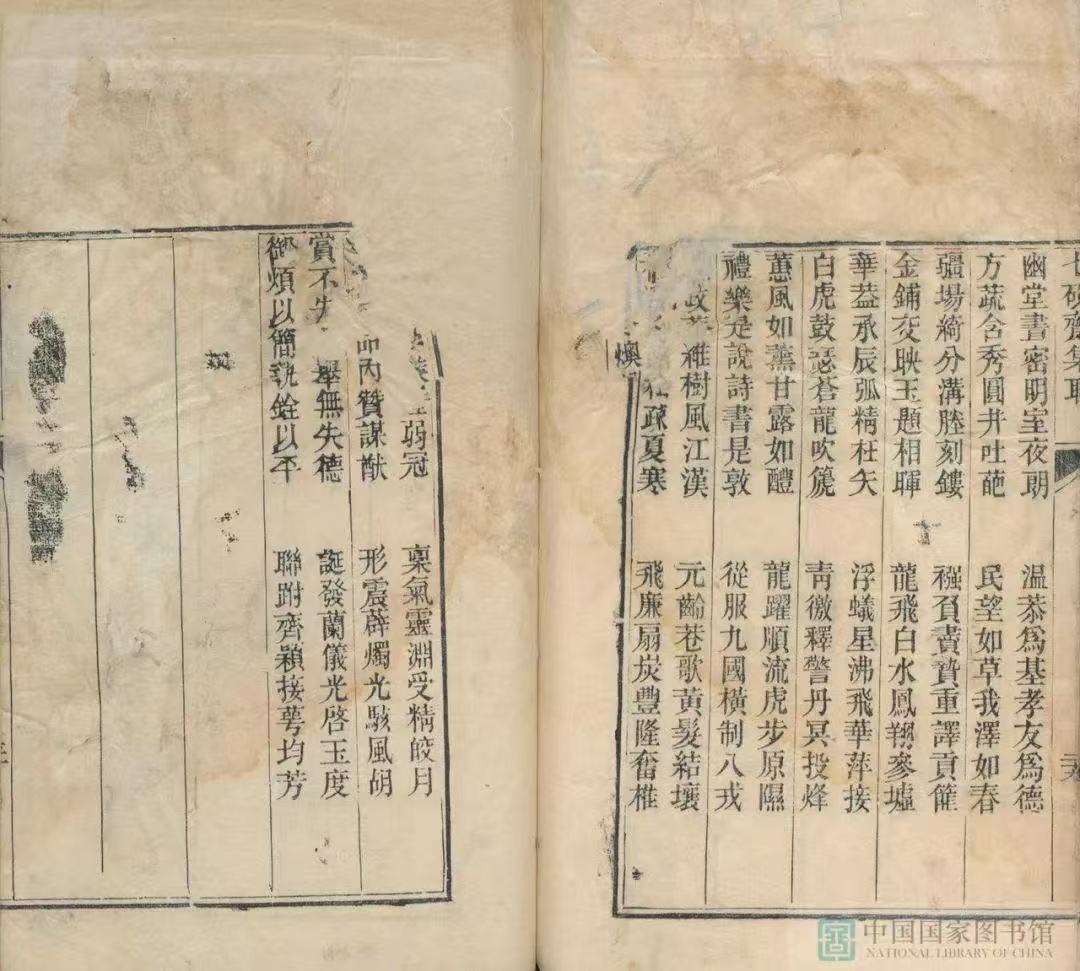 齋集
幽堂書密明室夜朗　溫恭爲基孝友爲德
方疏含秀圓井吐葩　民望如草我澤如春
彊場綺分溝塍刻鏤　襁負賮贄重譯貢篚
金鋪交映玉題相暉　龍飛白水鳳翔參墟
華葢承辰弧精枉矢　浮蟻星沸飛華萍接
白虎鼓瑟蒼龍吹篪　靑徼釋警丹冥投烽
蕙風如薰甘露如醴　龍躍順流虎步原隰
禮樂是說詩書是敦　從服九國橫制八戎
政樹風江漢　元齠巷歌黃髮結壤
燠疎夏寒　飛廉扇炭豐隆奮椎
弱冠　稟氣靈淵受精皎月
內贊謀猷　形震薜燭光駭風胡
賞不失舉無失德　誕發蘭儀光啓玉度
御煩以簡執銓以平　聯跗齊穎接萼均芳
中国国家图书馆
NATIONAL LIBRARY OF CHINA